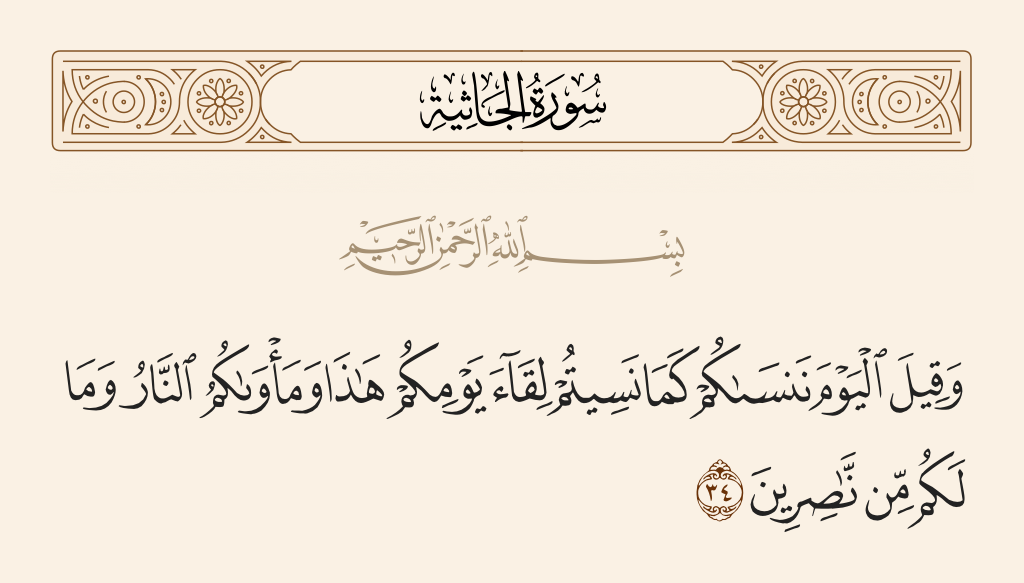 سُورَةُ الجَاثِيَةِ
بِسْمِ ٱللَّهِ ٱلرَّحْمَٰنِ ٱلرَّحِيمِ
وَقِيلَ ٱلْيَوْمَ نَنسَىٰكُمْ كَمَا نَسِيتُمْ لِقَآءَ يَوْمِكُمْ هَٰذَا وَمَأْوَىٰكُمُ ٱلنَّارُ وَمَا
لَكُم مِّن نَّٰصِرِينَ ٣٤